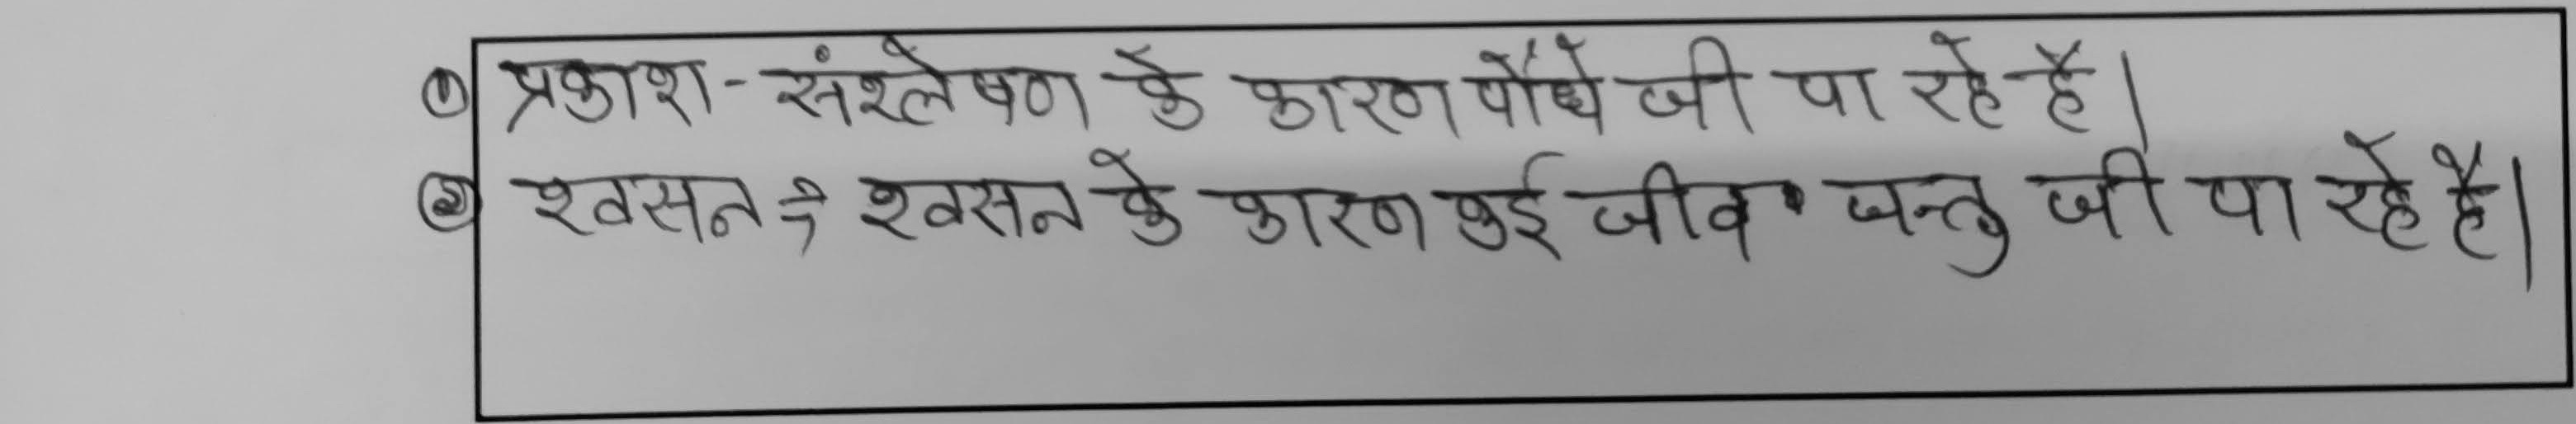 ① प्रकाश-संश्लेषण के कारण पौधे जी पा रहे है।
② श्वसन → श्वसन के कारण कई जीव जन्तु जी पा रहे है।